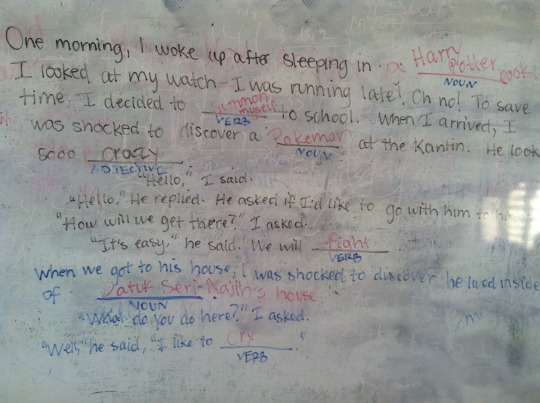 One morning, I woke up after sleeping in a Harry Potter book
NOUN
I looked at my watch - I was running late! Oh no! To save
time, I decided to summon myself to school. When I arrived, I
VERB
was shocked to discover a Pokemon at the Kantin. He look
NOUN
sooo crazy.
ADJECTIVE
"Hello," I said.
"Hello." He replied. He asked if I'd like to go with him to
"How will we get there?" I asked.
"It's easy," he said. We will fight.
VERB
When we got to his house, I was shocked to discover he lived inside
of Datuk Seri Najib's house.
NOUN
"What do you do here?" I asked.
"Well," he said, "I like to cry."
VERB